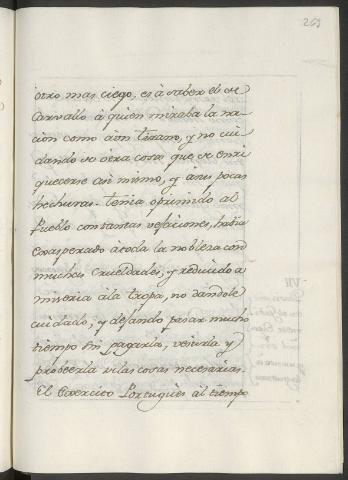 269
otro mas ciego, es à saber el de
Carvallo à quien miraba la na-
cion como à un tirano, y no cui
dando de otra cosa que de enri
quecerse asi mismo, y à sus pocas
hechuras. tenia oprimido al
Pueblo con tantas vejaciones, havia
exasperado à toda la nobleza con
muchas crueldades, y reducido a
miseria à la tropa, no dandole
cuidado, y dejando pasar mucho
tiempo sin pagarla, vestirla y
proveerla de las cosas necesarias.
El Exercito Portugues al tiempo